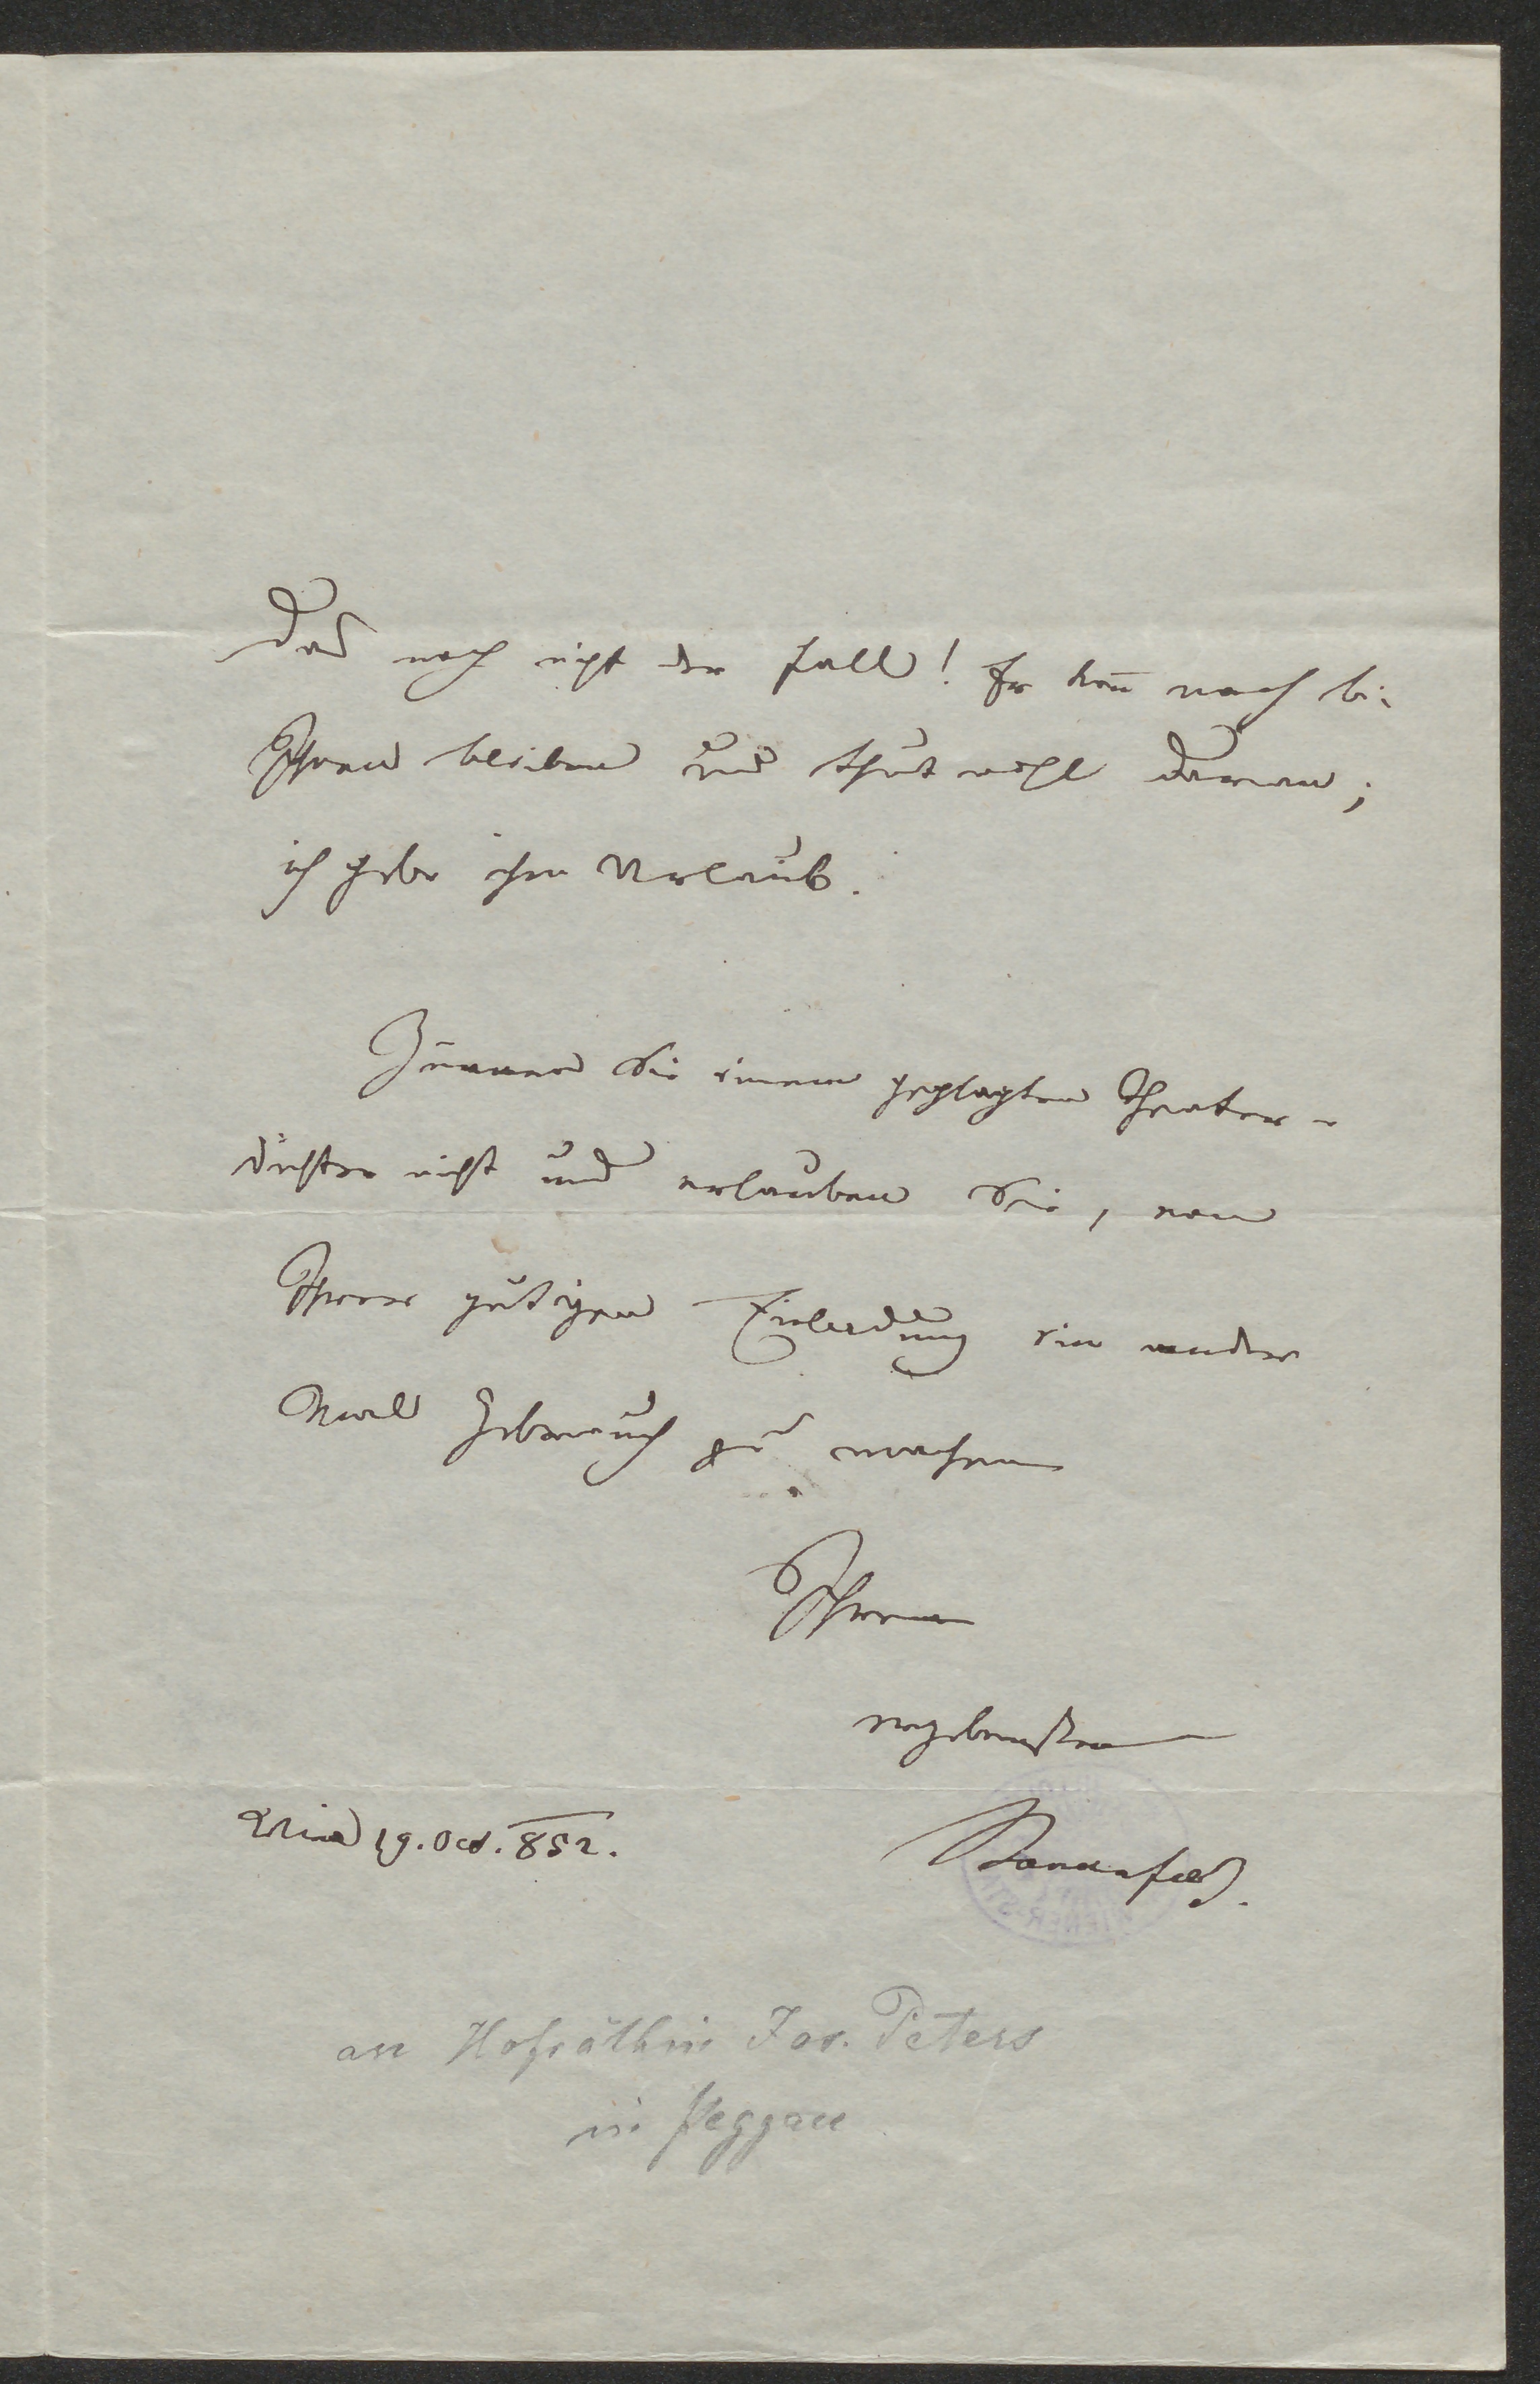 das noch nicht der Fall! Er kan̅ noch bei
Ihnen bleiben und thut wohl daran;
ich gebe ihm Urlaub.
Zürnen Sie einem geplagten Theater-
dichter nicht und erlauben Sie, von
Ihrer gütigen Einladung ein ander
Mal Gebrauch zu machen
Ihrem
ergebensten
Wien 19. Oct. 852.
Bauernfeld.
an Hofräthin Jos. Peters
in Peggau